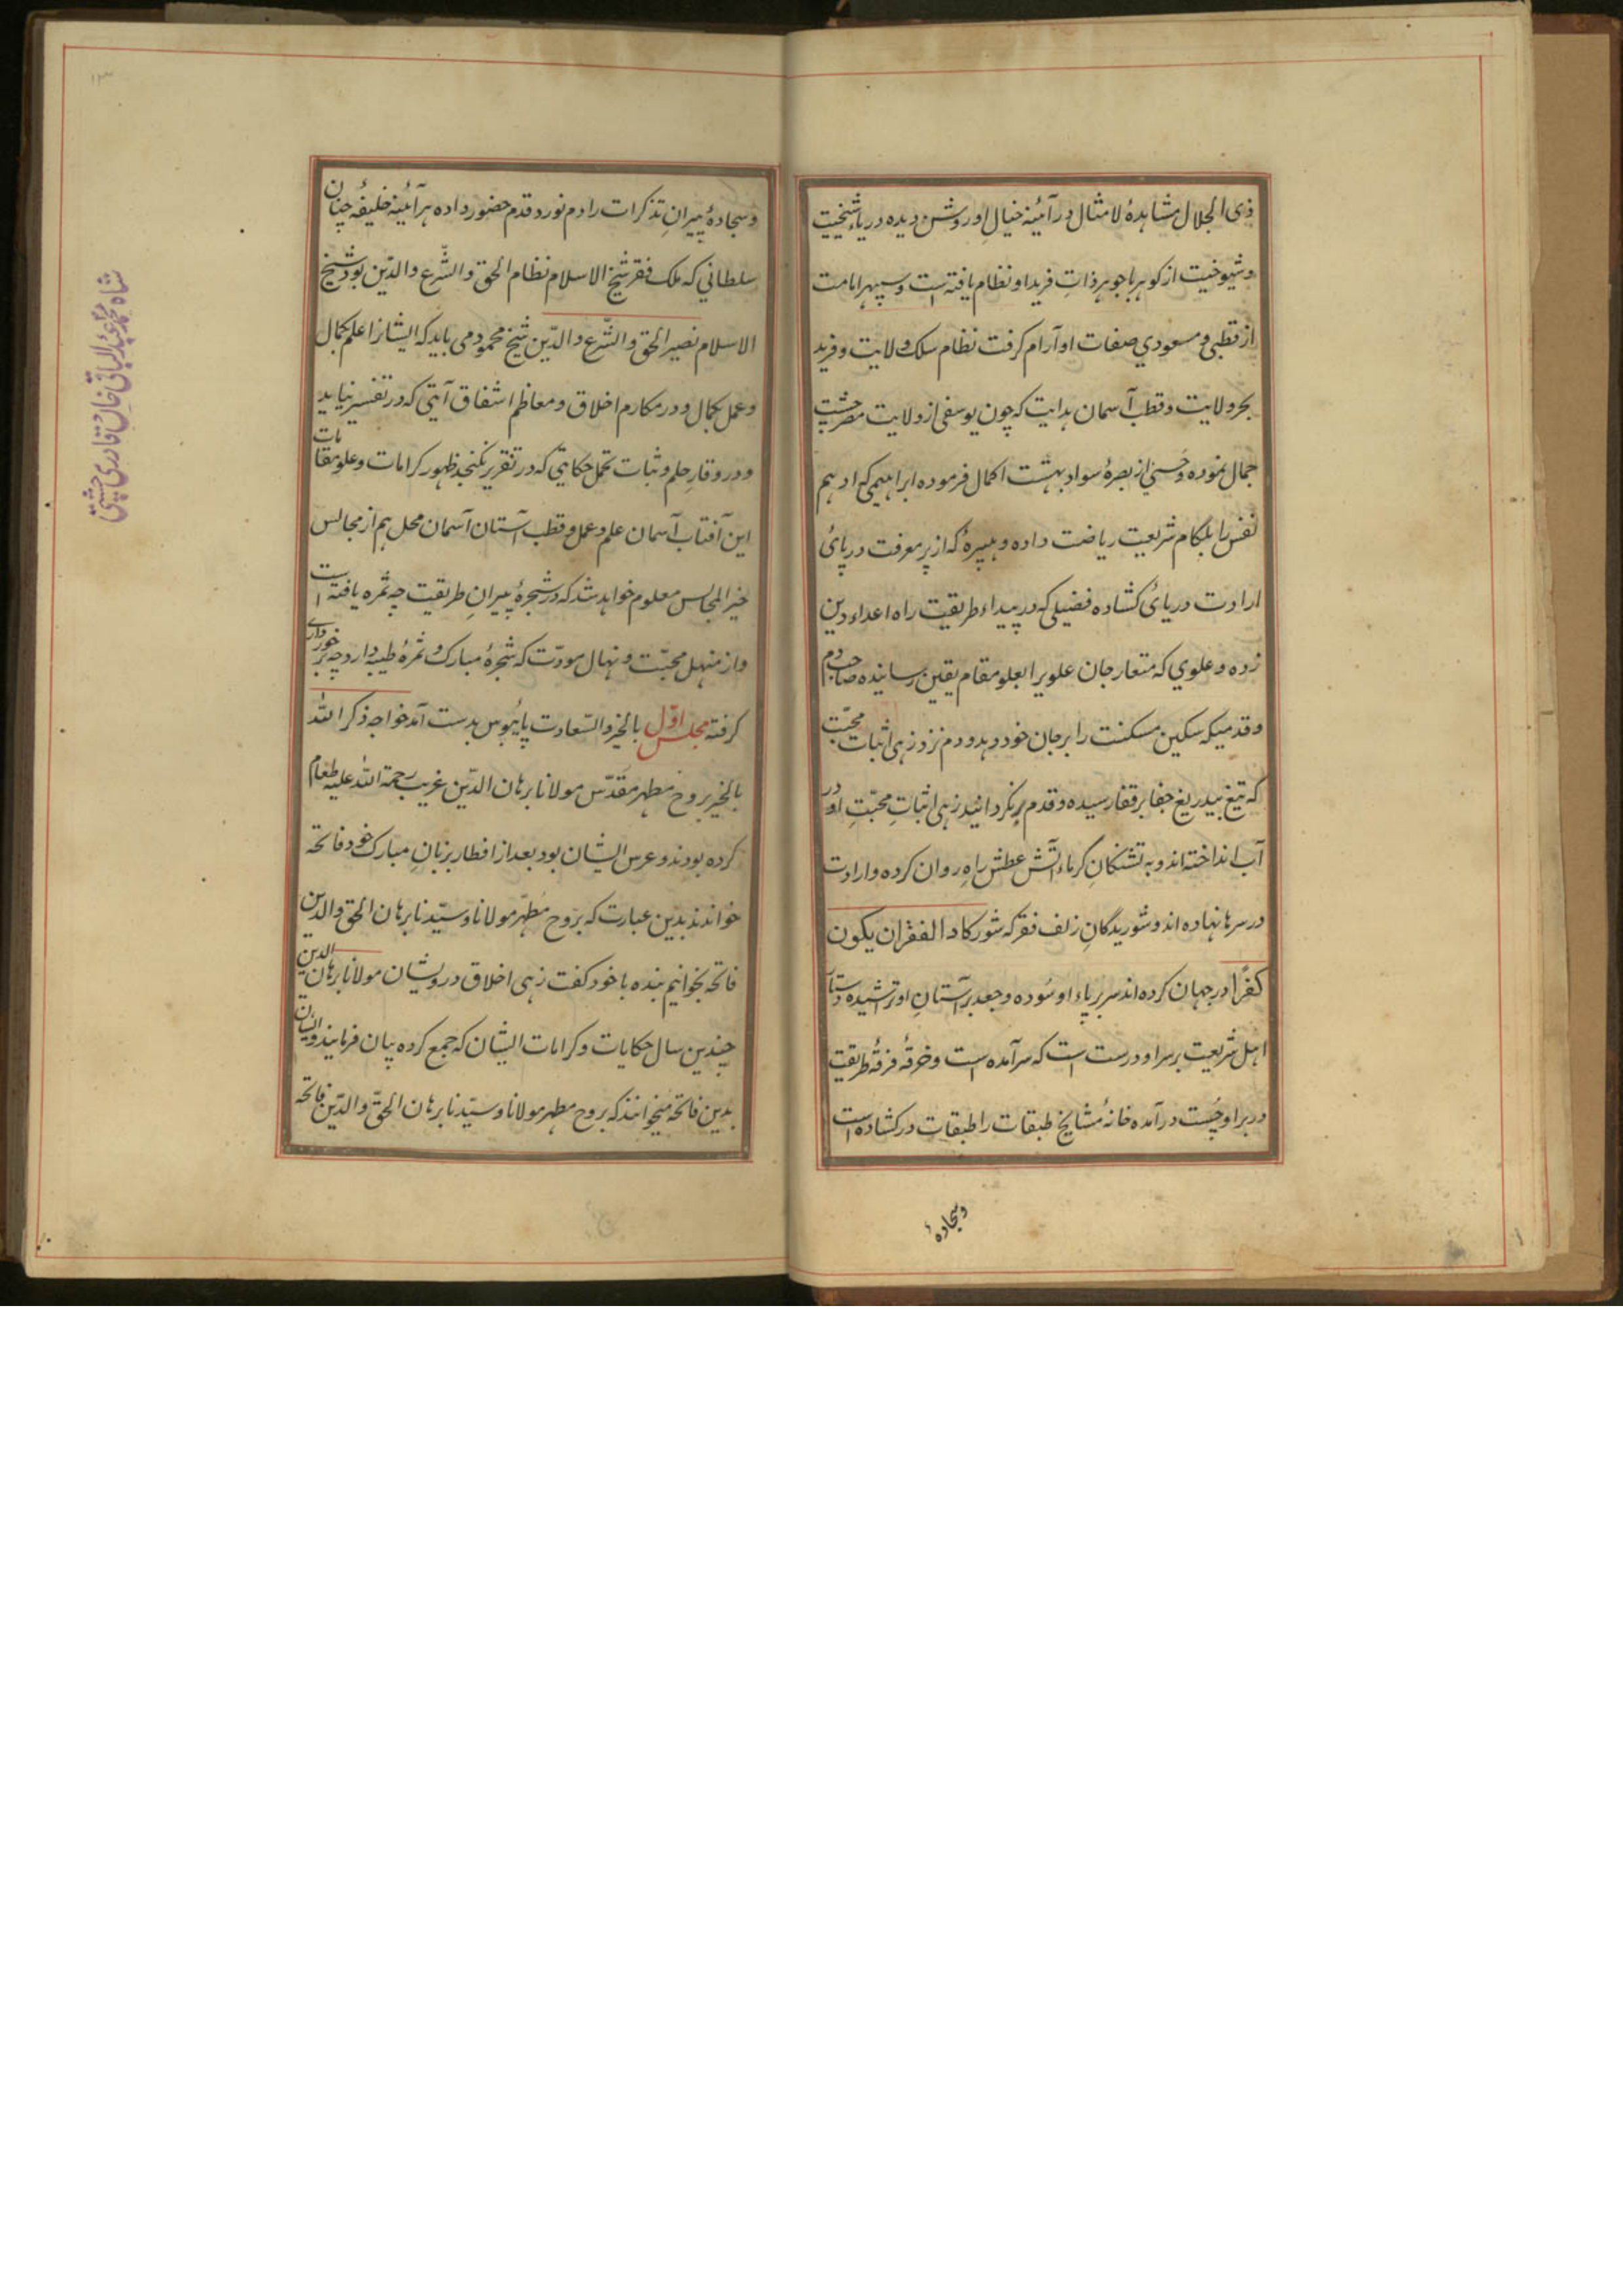 ذی الجلال مشاهدهٔ لا مثال در آئینهٔ خیال او روشن دیده دریاء شیخیت
و شیوخیت از گوهر با جوهر ذات فرید او نظام یافته است و سپهر امامت
از قطبی و مسعودی صفات او آرام گرفت نظام سلک ولایت و فرید
بحر ولایت و قطب آسمان هدایت که چون یوسفی از ولایت مصر چشت
جمال نموده و حسنی از بصرهٔ سواد بهشت اکمال فرموده ابراهیمی که ادهم
نفس را بلکام شریعت ریاضت داده و هبیرهٔ که از بر معرفت در پای
ارادت دریائ کشاده فضیلی که در بیداء طریقت راه اعداء دین
زده و علوی که متعار جان علویرا بعلو مقام یقین رسانیده صاحب دم
و قدمیکه سکین مسکنت را بر جان خود دهد و دم نزد زهی اثبات محبّت
که تیغ بیدریغ جفا بر قفا رسیده و قدم بر نکردانید زهی اثبات محبّت او در
آب انداخته اند و به تشنکان گرماء آتش عطش راه روان کرده و ارادت
در سرها نهاده اند و شوریدگان زلف فقر که شور کاد الفقر ان یکون
کفرا در جهان کرده اند سر بر پاء او سوده و جعد بر آستان او تراشیده دستار
اهل شریعت بر سر او درست است که سرآمده است و خرقهٔ فرقهٔ طریقت
در بر او چست درآمده خانهٔ مشایخ طبقات را طبقات در کشاده است
و سجادهٔ
و سجادهٔ پیران تذکرات را دم نور و قدم حضور داده هر آئینه خلیفهٔ چنان
سلطانی که ملک فقر شیخ الاسلام نظام الحق و الشّرع و الدّین بود شیخ
الاسلام نصیر الحق و الشّرع و الدّین شیخ محمود می باید که ایشانرا علم کمال
و عمل بکمال و در مکارم اخلاق و معاظم اشفاق آیتی که در تفسیر نیاید
و در وقار حلم و ثبات تحمل حکایتی که در تقریر نکنجد ظهور کرامات و علو مقامات
این آفتاب آسمان علم و عمل و قطب آستان آسمان محل هم از مجالس
خیر المجالس معلوم خواهد شد که در شجرهٔ پیران طریقت چه ثمره یافته است
و از منهل محبّت و نهال مودّت که شجرهٔ مبارک و ثمرهٔ طیبه دارد چه برخورداری
گرفته مجلس اوّل بالخیر و السّعادت پائبوس بدست آمد خواجه ذکر اللّه
بالخیر بروح مطهر مقدّس مولانا برهان الدّین غریب رحمة اللّه علیه طعام
کرده بودند و عرس ایشان بود بعد از افطار بزبان مبارک خود فاتحه
خواندند بدین عبارت که بروح مطهر مولانا و سیّدنا برهان الحق و الدین
فاتحه بخوانیم بنده با خود گفت زهی اخلاق درویشان مولانا برهان الدین
چندین سال حکایات و کرامات ایشان که جمع کرده بیان فرمایند و ایشان
بدین فاتحه میخوانند که بروح مطهر مولانا و سیّدنا برهان الحقّ و الدّین فاتحه
شاه محمد عبد الباقی خان قادری چشتی
۱۳